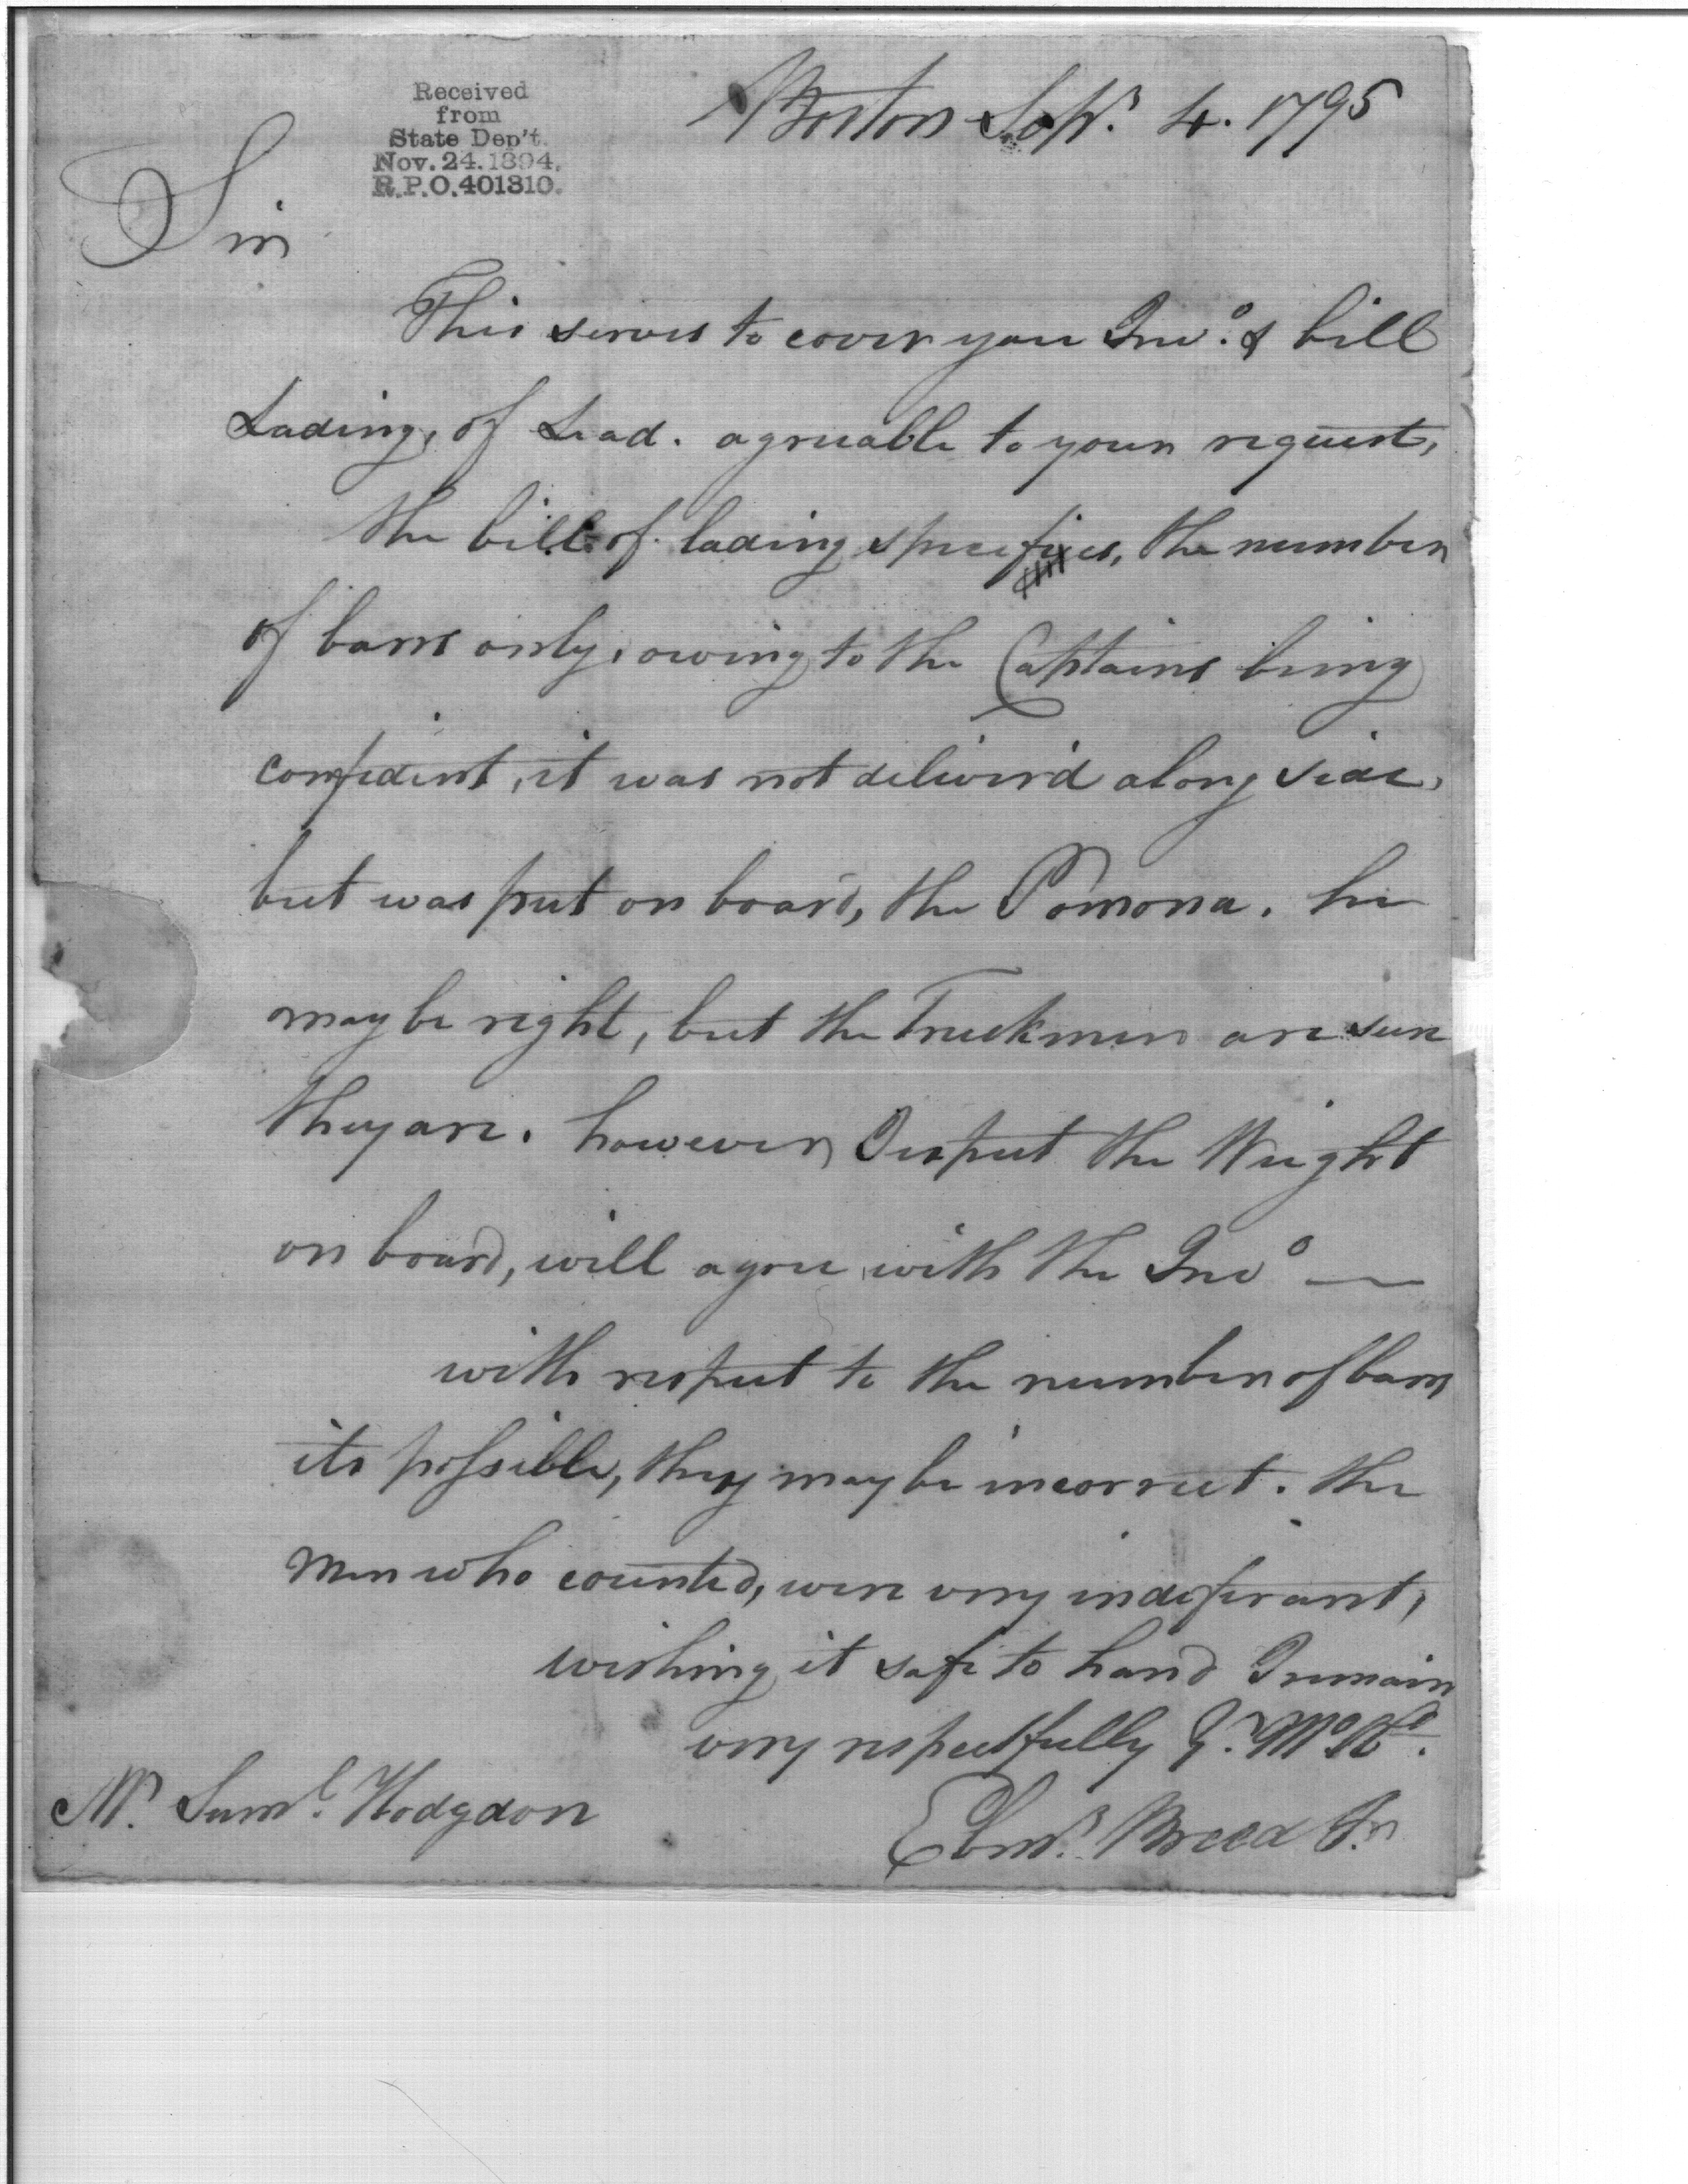 Received
from
State Dep't.
Nov. 24. 1894.
R.P.O. 401310.
Boston Sepr. 4. 1795
Sir
This serves to cover you Invo. & bill
Lading, of Lead. agreeable to your request,
the bill of lading specifies, the number
of barrs only, owing to the Captains being
confident, it was not deliver'd along side,
but was put on board, the Pomona. he
may be right, but the Truckmen are sure
they are. however I expect the Weight
on board, will agree with the Invo —
with respect to the number of barrs
its possible, they may be incorrect. the
men who counted, were very indeferant,
wishing it safe to hand I remain
very respectfully Yr. Mo. Hb.
Mr. Saml. Hodgdon
Ebnr. Breed Jr